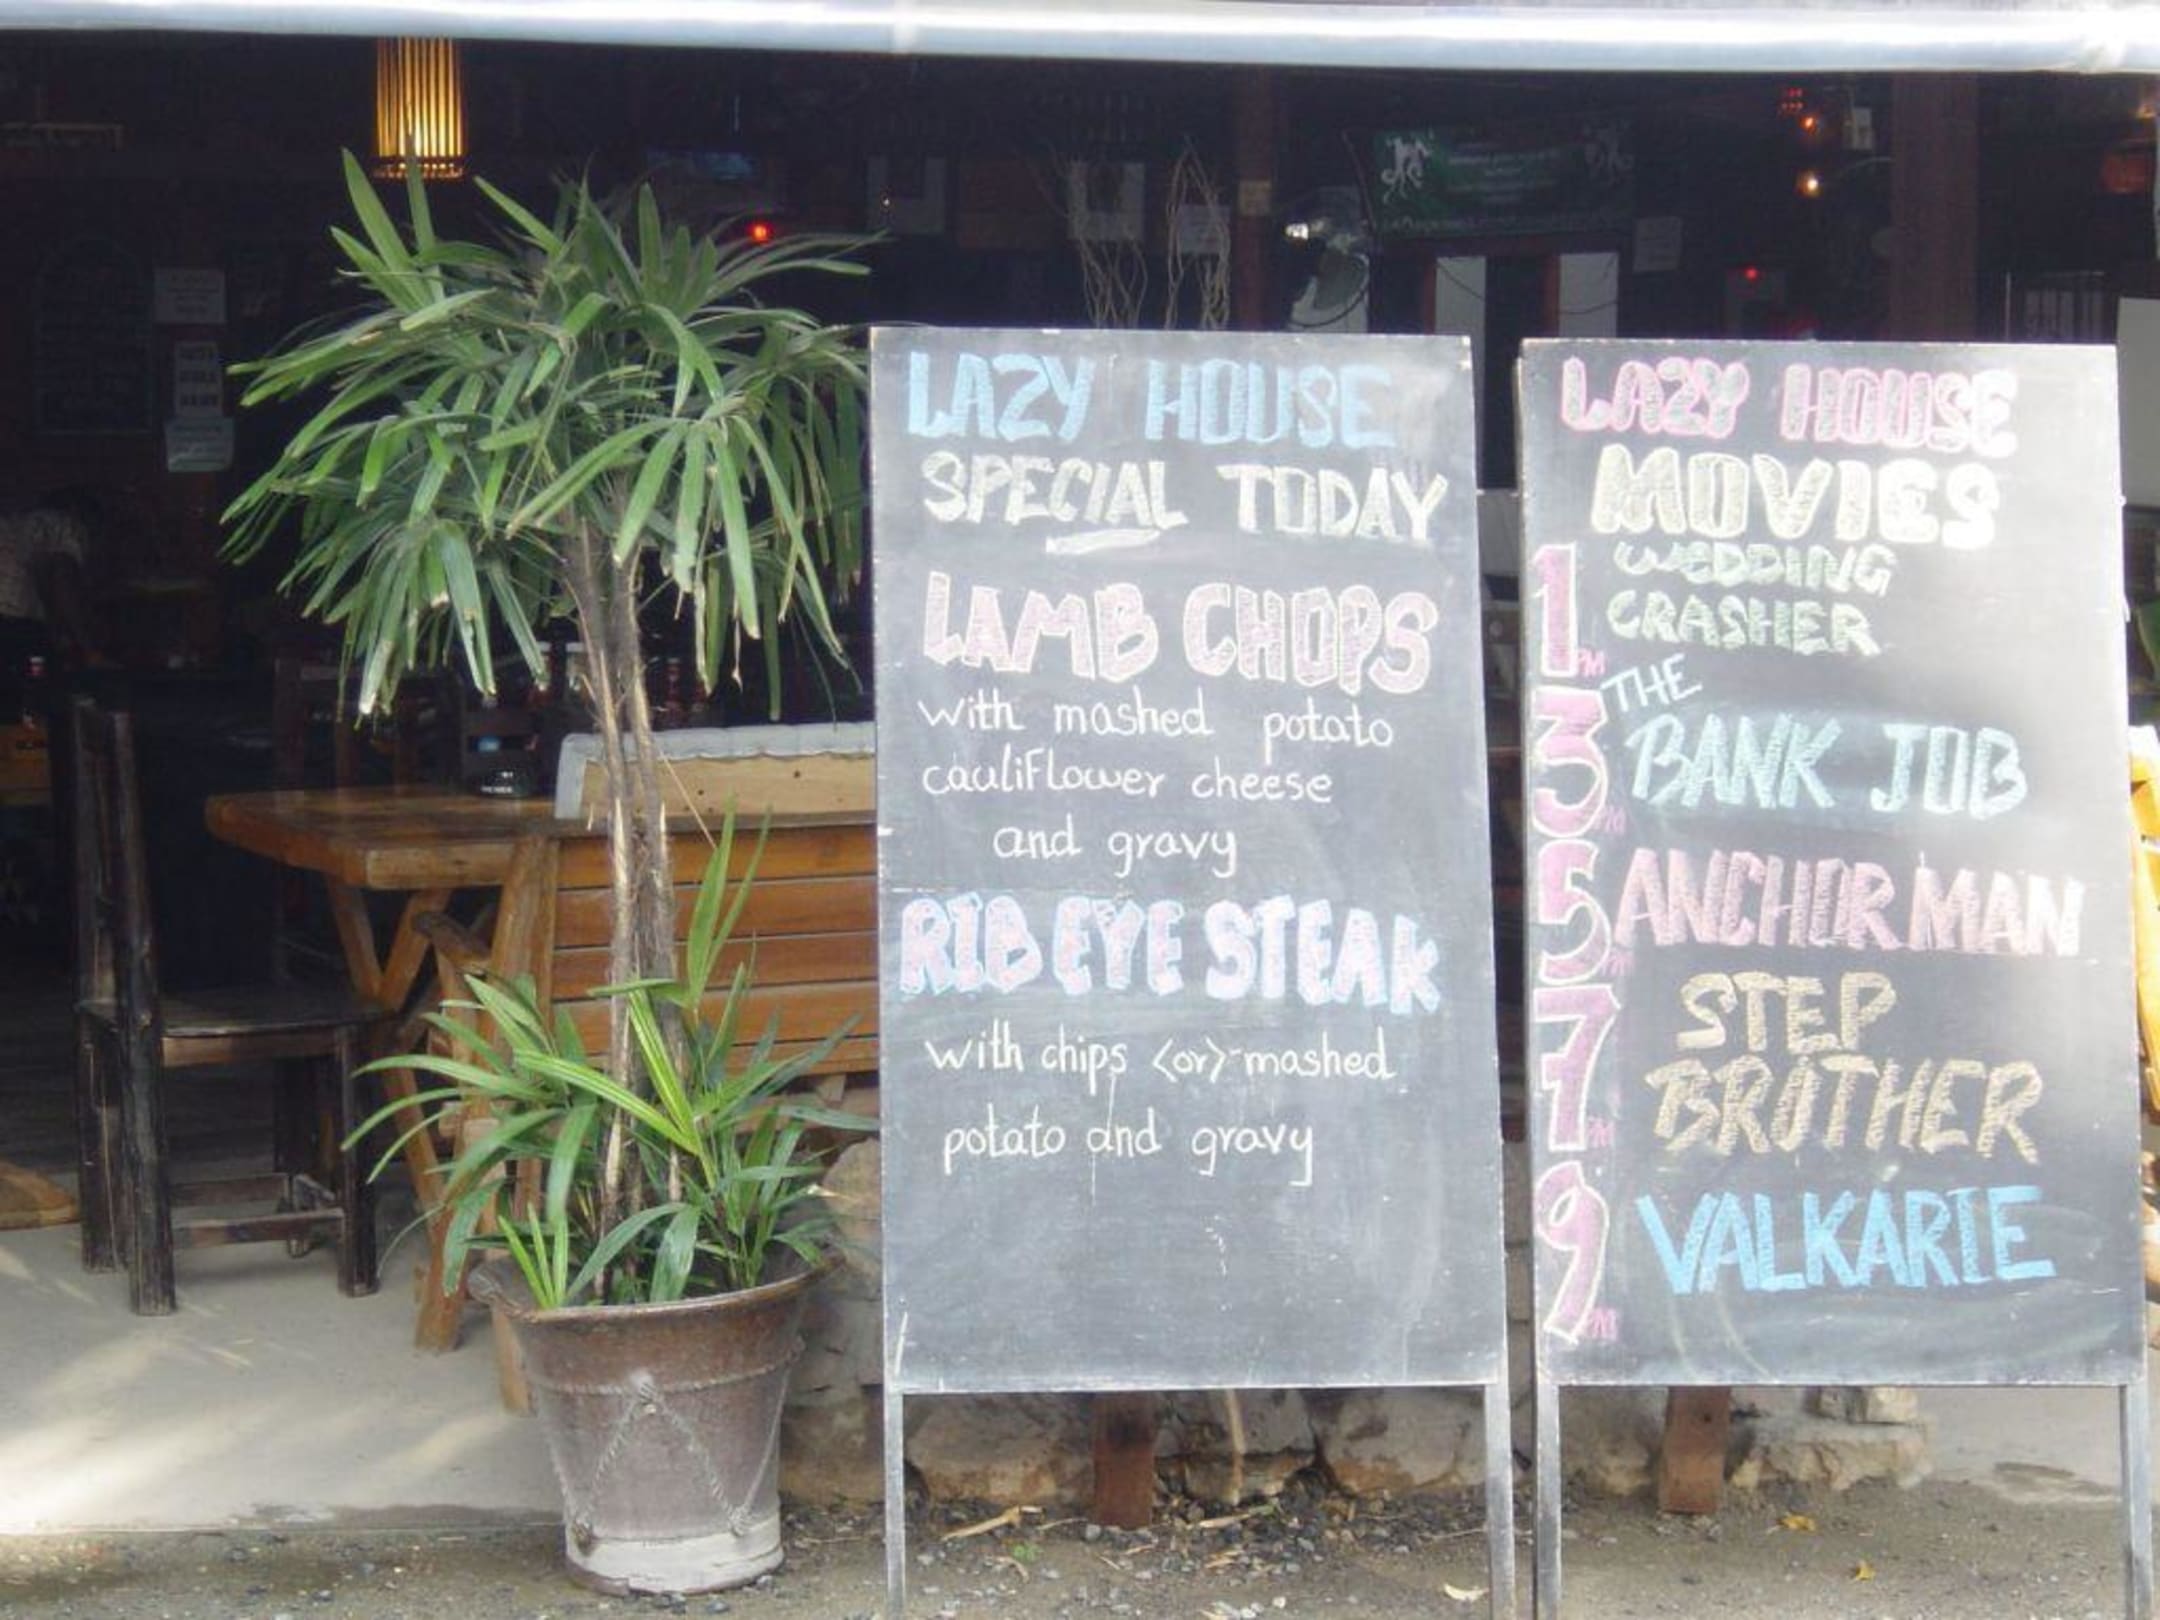 LAZY HOUSE
SPECIAL TODAY
LAMB CHOPS
with mashed potato
cauliflower cheese
and gravy
RIB EYE STEAK
with chips <or> mashed
potato and gravy
LAZY HOUSE
MOVIES
1PM WEDDING
CRASHER
3PM THE
BANK JOB
5PM ANCHOR MAN
7PM STEP
BROTHER
9PM VALKARIE